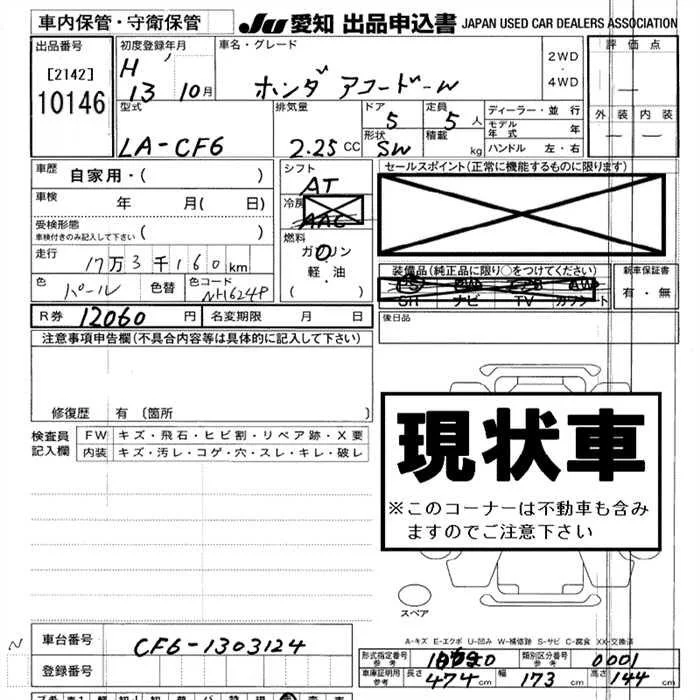 車内保管・守衛保管
JU 愛知 出品申込書 JAPAN USED CAR DEALERS ASSOCIATION
出品番号
[2142]
10146
初度登録年月
H 13 10月
車名・グレード
ホンダ アコードーW
2WD
・
4WD
評価点
外装 内装
型式
LA-CF6
排気量
2.25 CC
ドア
5
定員
5人
形状
SW
積載
kg
ディーラー・並行
モデル年式 年
ハンドル 左・右
車歴
自家用・( )
車検
年 月( 日)
受検形態
車検付きのみ記入して下さい ( )
走行
17万3千160km
色
パール
色替
色コード
NH624P
シフト
AT
冷房
AAC
燃料
ガソリン
軽・油
・
( )
セールスポイント(正常に機能するものに限ります)
装備品(純正品に限り○をつけてください)
PS PW AW
SH ナビ TV カワシート
新車保証書
有・無
R券 12060 円
名変期限 月 日
後日品
注意事項申告欄(不具合内容等は具体的に記入して下さい)
修復歴 有 〔箇所 〕
検査員
記入欄
FW キズ・飛石・ヒビ割・リペア跡・X要
内装 キズ・汚レ・コゲ・穴・スレ・キレ・破レ
現状車
※このコーナーは不動車も含み
ますのでご注意下さい
スペア
A-キズ E-エクボ U-凹み W-補修跡 S-サビ C-腐食 XX-交換済
車台番号
CF6-1303124
登録番号
形式指定番号
参考
類別区分番号
参考
0001
車庫証明用
参考
長さ
474cm
幅
173cm
高さ
144cm